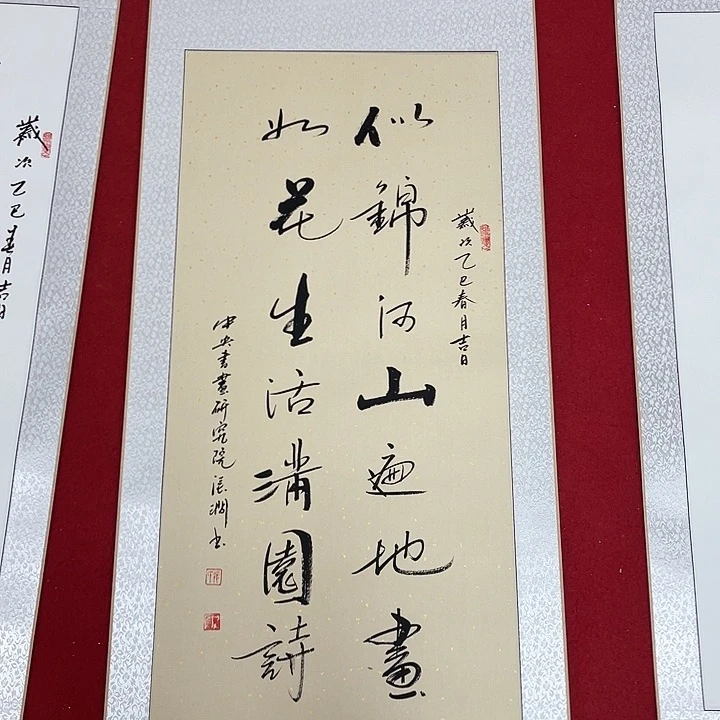 歲次乙巳春月吉日
似錦河山遍地畫
如花生活滿園詩
中央書畫研究院張澗书
歲次乙巳春月吉日